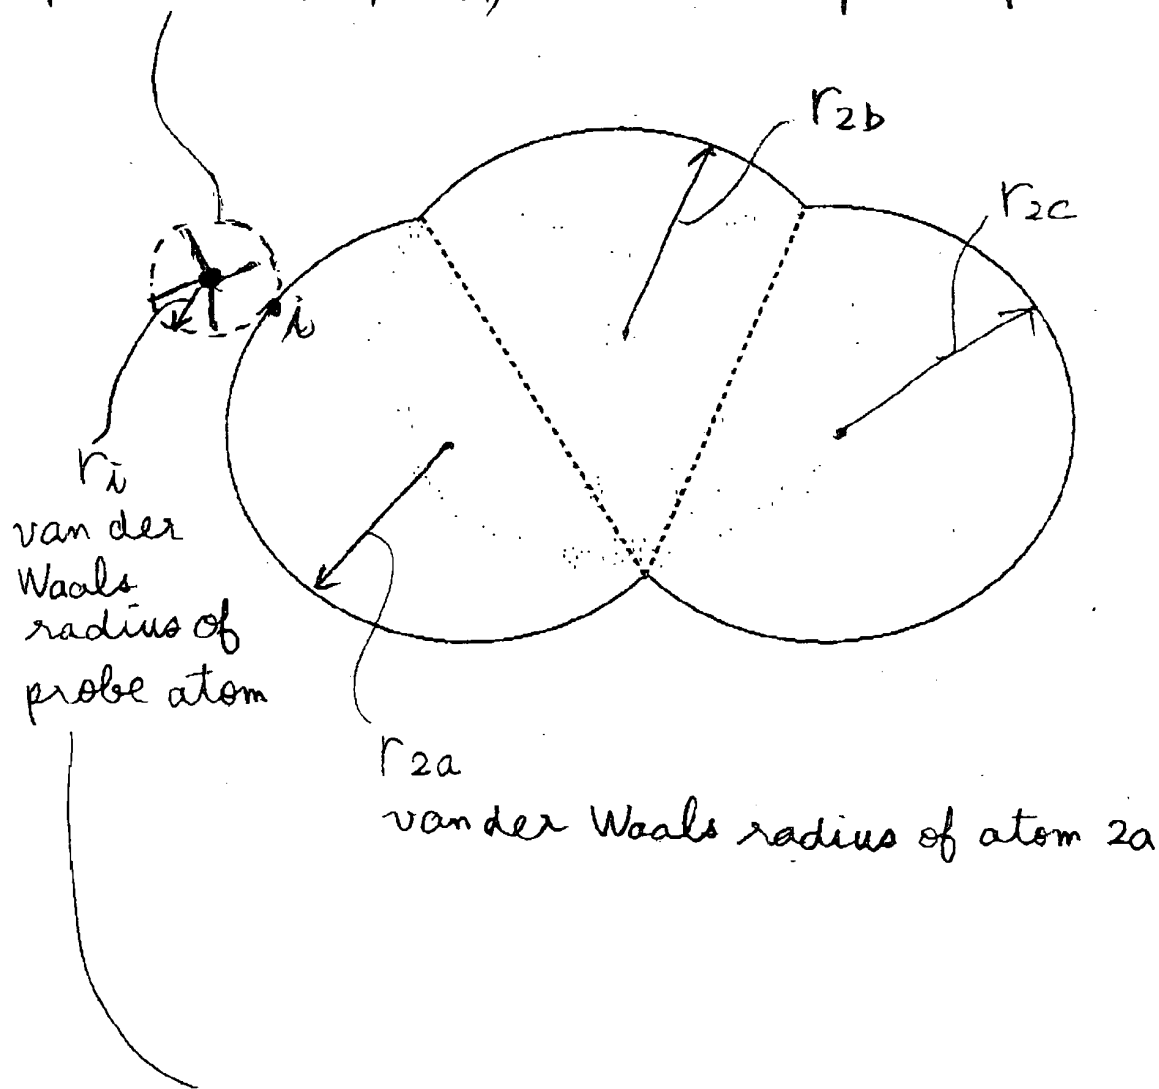 r2b
r2c
i
ri
van der
Waals
radius of
probe atom
r2a
van der Waals radius of atom 2a